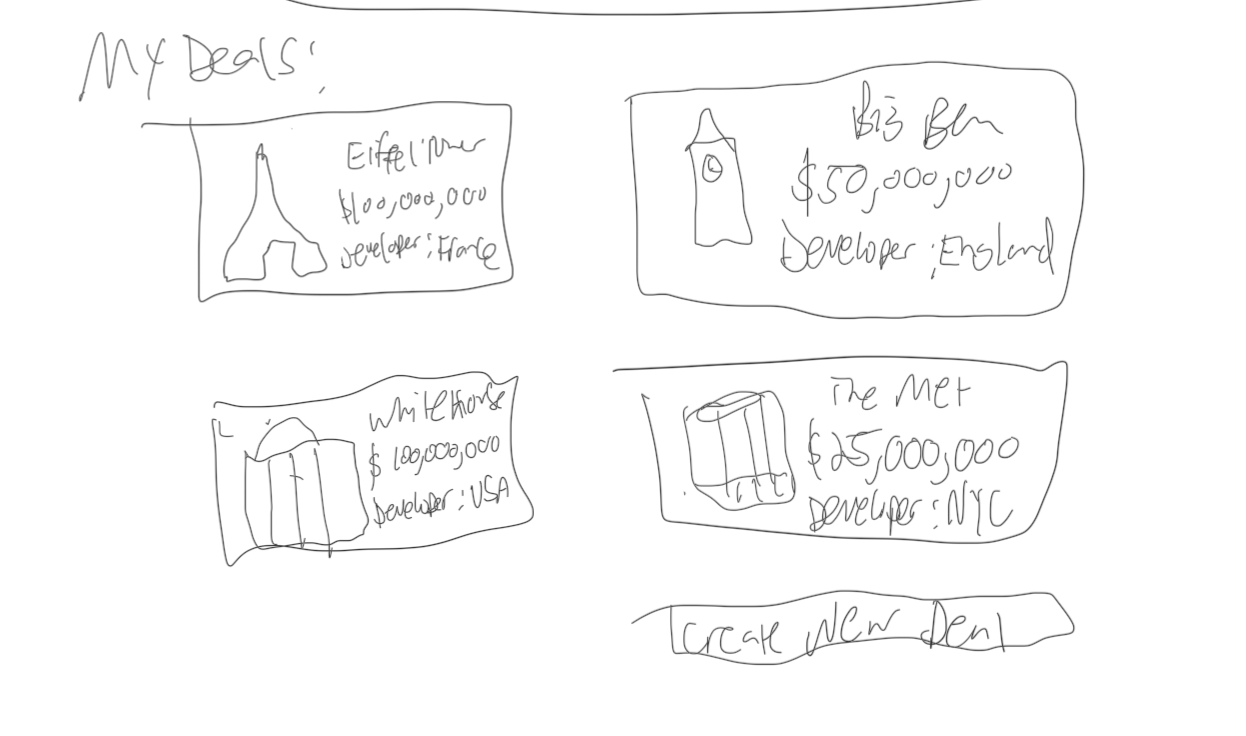 My Deals:
Eiffel Tower
$100,000,000
Developer: France
Big Ben
$50,000,000
Developer: England
White House
$100,000,000
Developer: USA
The Met
$25,000,000
Developer: NYC
Create New Deal